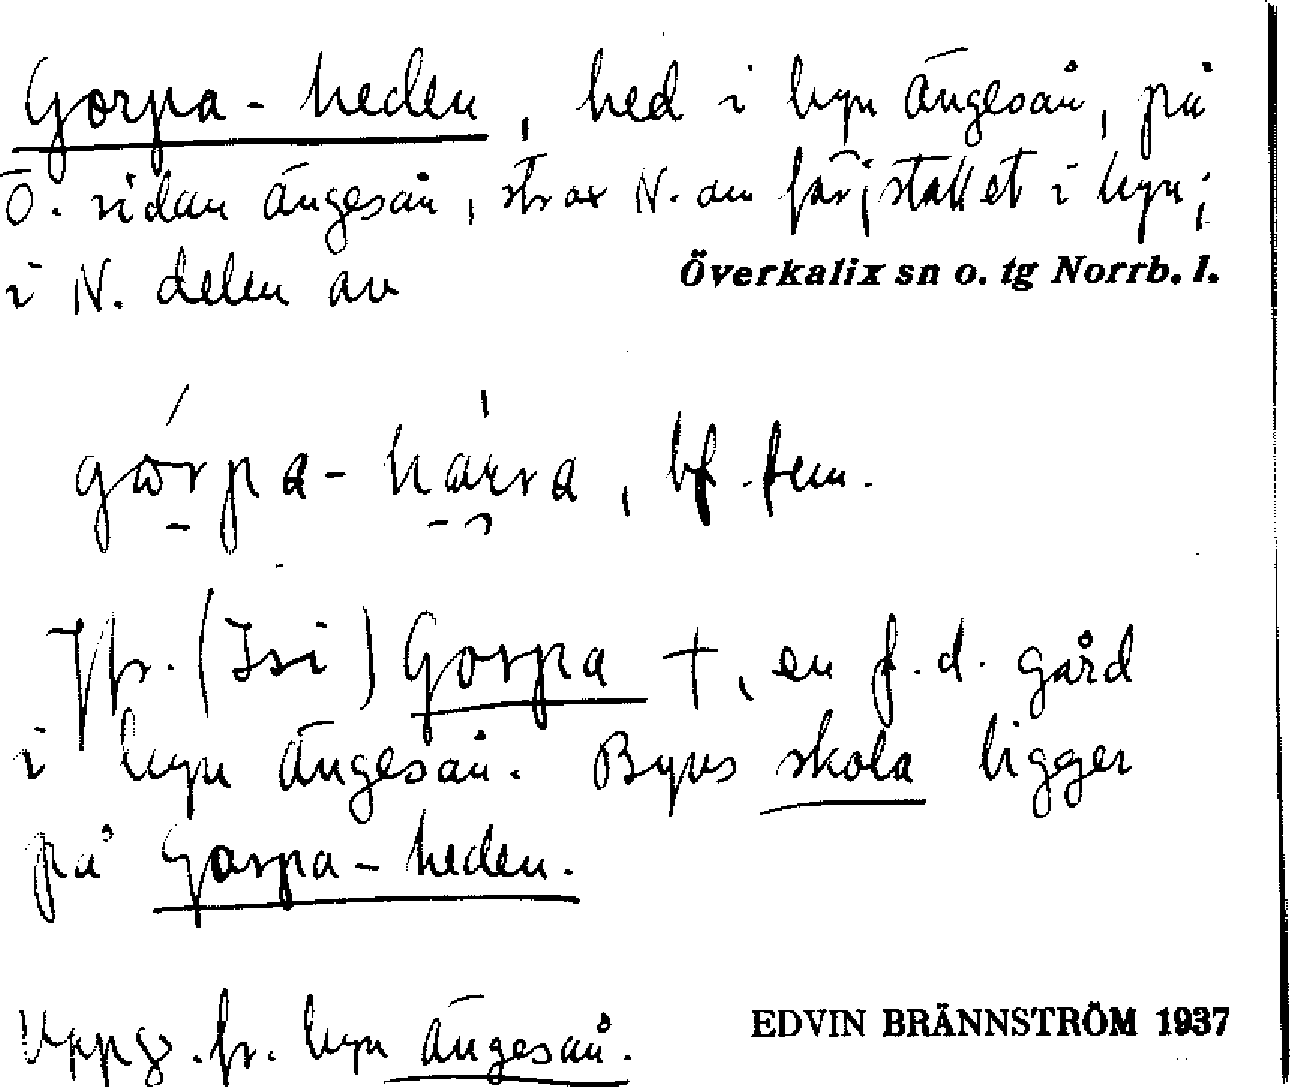 Gorpa-heden, hed i byn Ängesån, på
Ö. sidan Ängesån, strax N. om färjstället i byn;
i N. delen av Överkalix sn o. tg Norrb. l.
bf. fem.
Jfr. (Isi) Gorpa †, en f.d. gård
i byn Ängesån. Byns skola ligger
på Gorpa-heden.
Uppg. fr. byn Ängesån.
EDVIN BRÄNNSTRÖM 1937